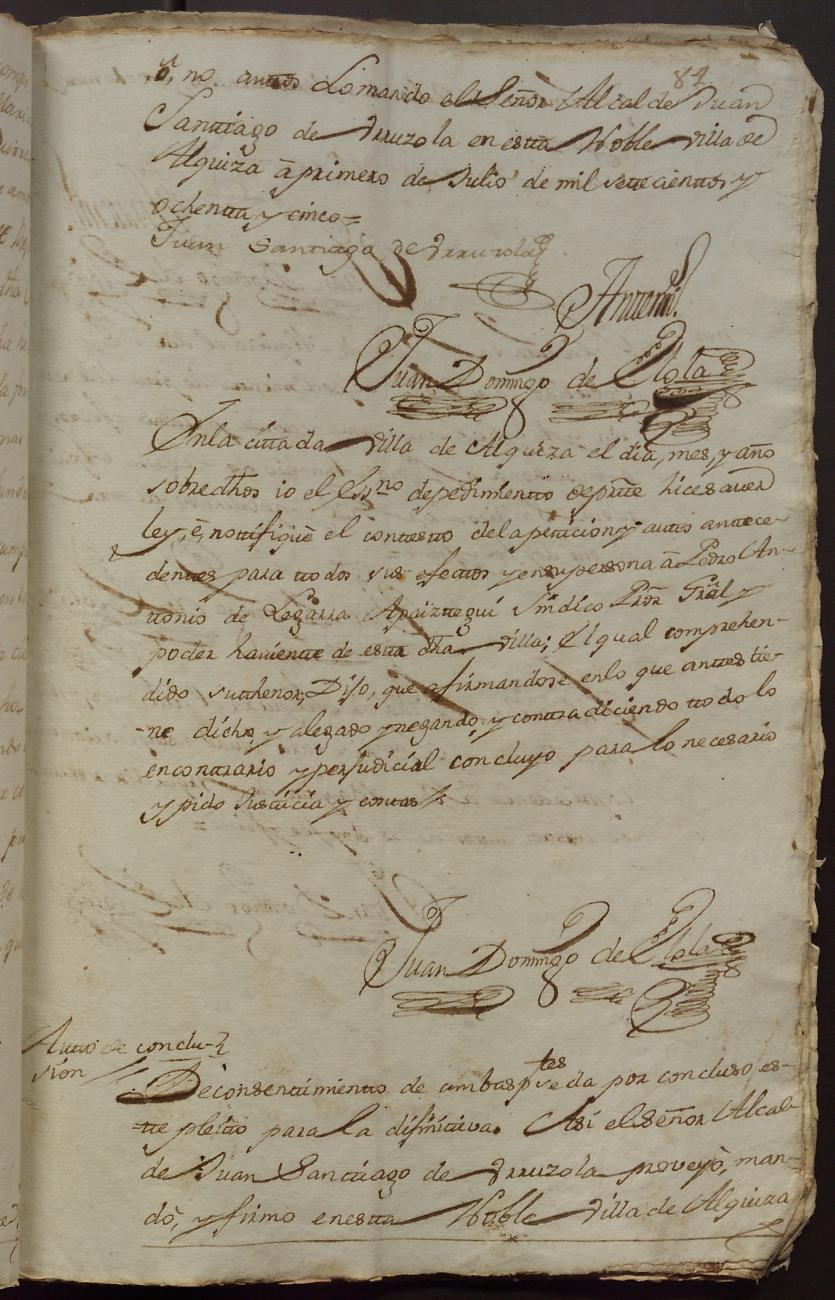 84
ô, no autos Lo mando el Señor Alcalde Juan
Santiago de Yrruzola en esta Noble Villa de
Alquiza â primero de Julio de mil setecientos y
ochenta y cinco=
Juan Santiago de Yrruzola
Antemi.
Juan Domingo de Elola
En la cittada Villa de Alquiza el dia, mes, y año
sobredhos io el Essno de pedimiento de parte hice saver
ley, ê, nottifiquè el contesto de la peticion y auto antece-
dentes para ttodos sus efectos y en su persona â Pedro An-
tonio de Legarra Apaiztegui Sindico Pror Gral y
poder haviente de esta dha Villa; El qual comprehen-
dido su thenor, Dijo, que afirmandose en lo que antes tie-
ne dicho y alegado y negando, y contradiciendo ttodo lo
en conttrario y perjudicial concluyo para lo necesario
y pido Justicia y costas
Juan Domingo de Elola
Autto de conclu-
sion
De consentimiento de ambas ptes se da por concluso es-
te pleito para la difinitiva. Asi el Señor Alcal-
de Juan Santiago de Yrruzola proveyò, man-
dò, y firmo en esta Noble Villa de Alquiza